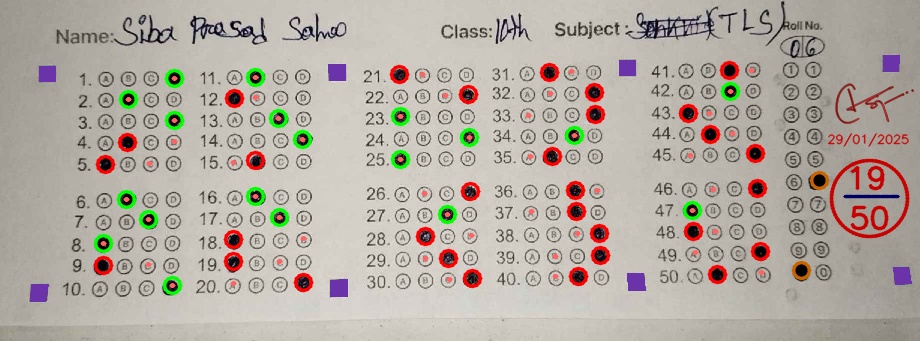 Name: Siba Prasad Sahoo Class: 10th Subject: (TLS) Roll No.
06
1. A B C
2. A C D
3. A B C
4. A C D
5. B C D
6. A C D
7. A B D
8. B C D
9. B C D
10. A B C
11. A C D
12. B C D
13. A B D
14. A B C
15. A C D
16. A C D
17. A B D
18. B C D
19. B C D
20. A B C
21. B C D
22. A B C
23. B C D
24. A B C
25. B C D
26. A B C
27. A B D
28. A C D
29. A B D
30. A B C
31. A C D
32. A B C
33. A B C
34. A B D
35. A C D
36. A B D
37. A B D
38. A B C
39. A B C
40. A B D
41. A B D
42. A B D
43. B C D
44. A C D
45. A B C
46. A B C
47. B C D
48. B C D
49. A B C
50. A C D
1 1
2 2
3 3
4 4
5 5
6
7 7
8 8
9 9
0
29/01/2025
19
50